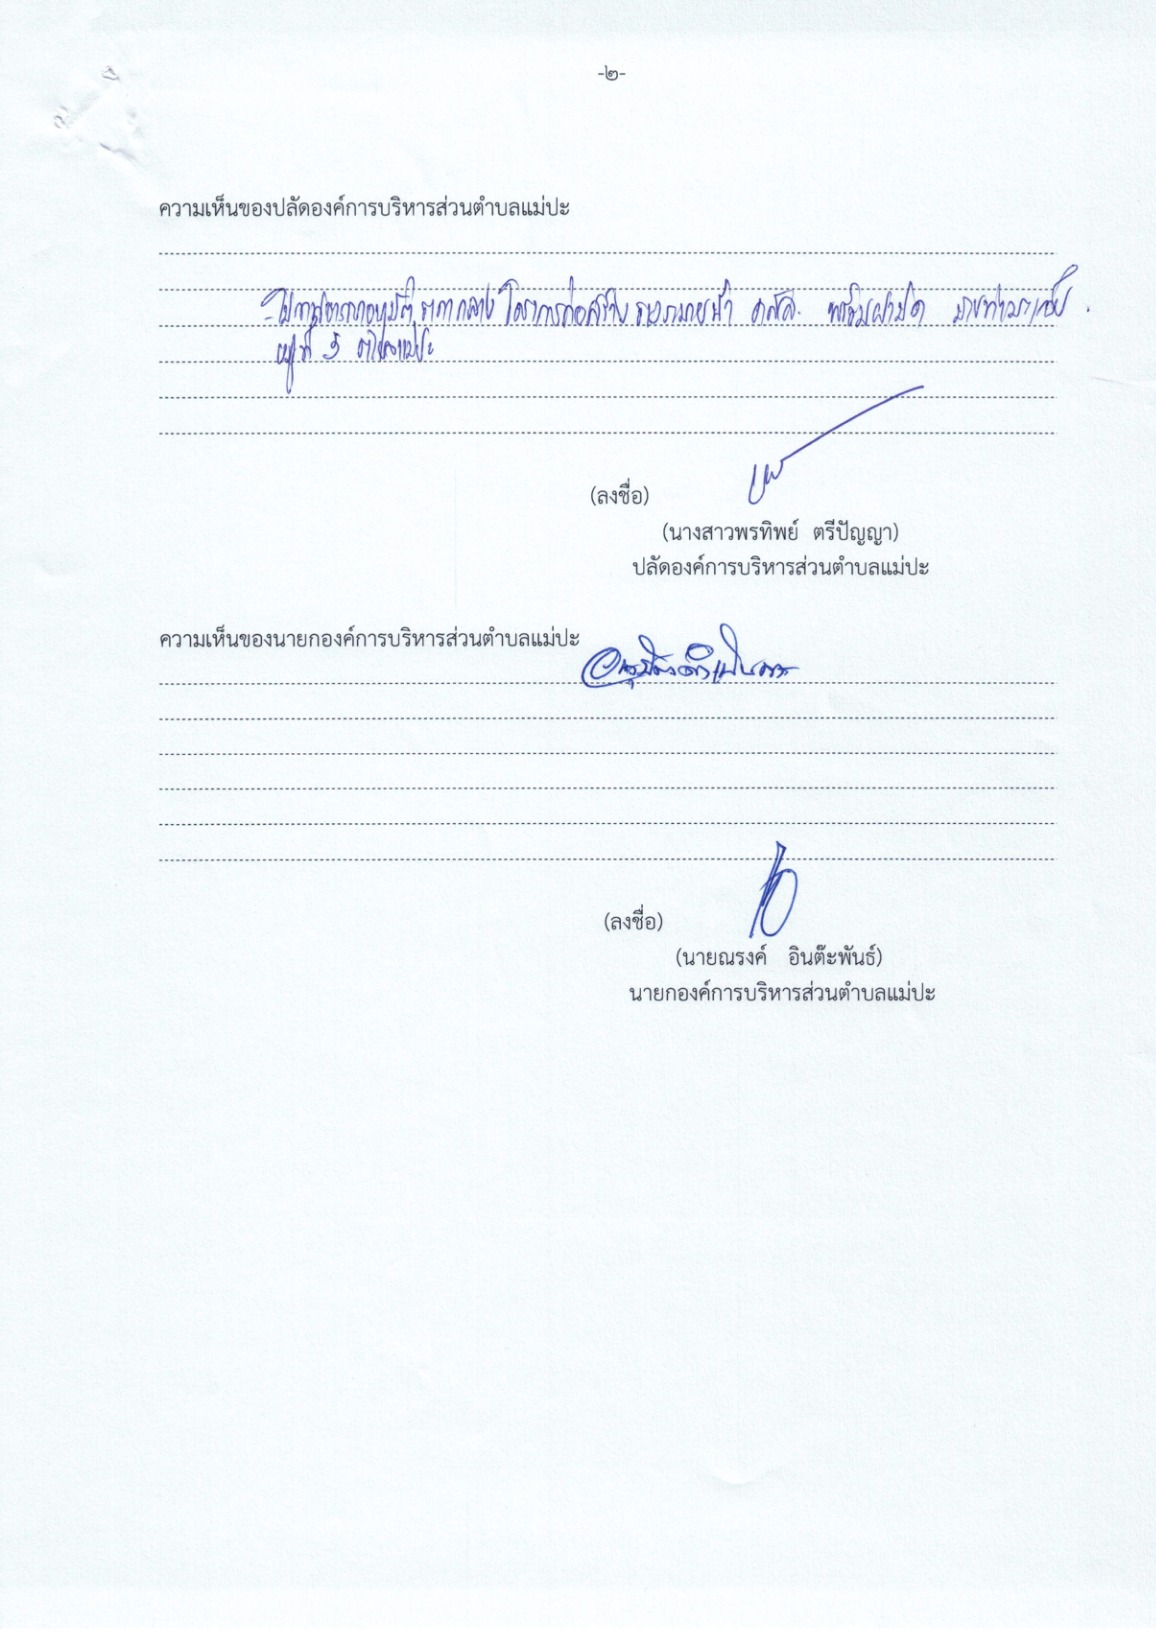 -๒-
ความเห็นของปลัดองค์การบริหารส่วนตำบลแม่ปะ
อนุมัติราคากลาง โครงการก่อสร้างรางระบายน้ำ คสล. พร้อมฝาปิด
หมู่ที่ ตำบลแม่ปะ
(ลงชื่อ)
(นางสาวพรทิพย์ ตรีปัญญา)
ปลัดองค์การบริหารส่วนตำบลแม่ปะ
ความเห็นของนายกองค์การบริหารส่วนตำบลแม่ปะ
(ลงชื่อ)
(นายณรงค์ อินต๊ะพันธ์)
นายกองค์การบริหารส่วนตำบลแม่ปะ